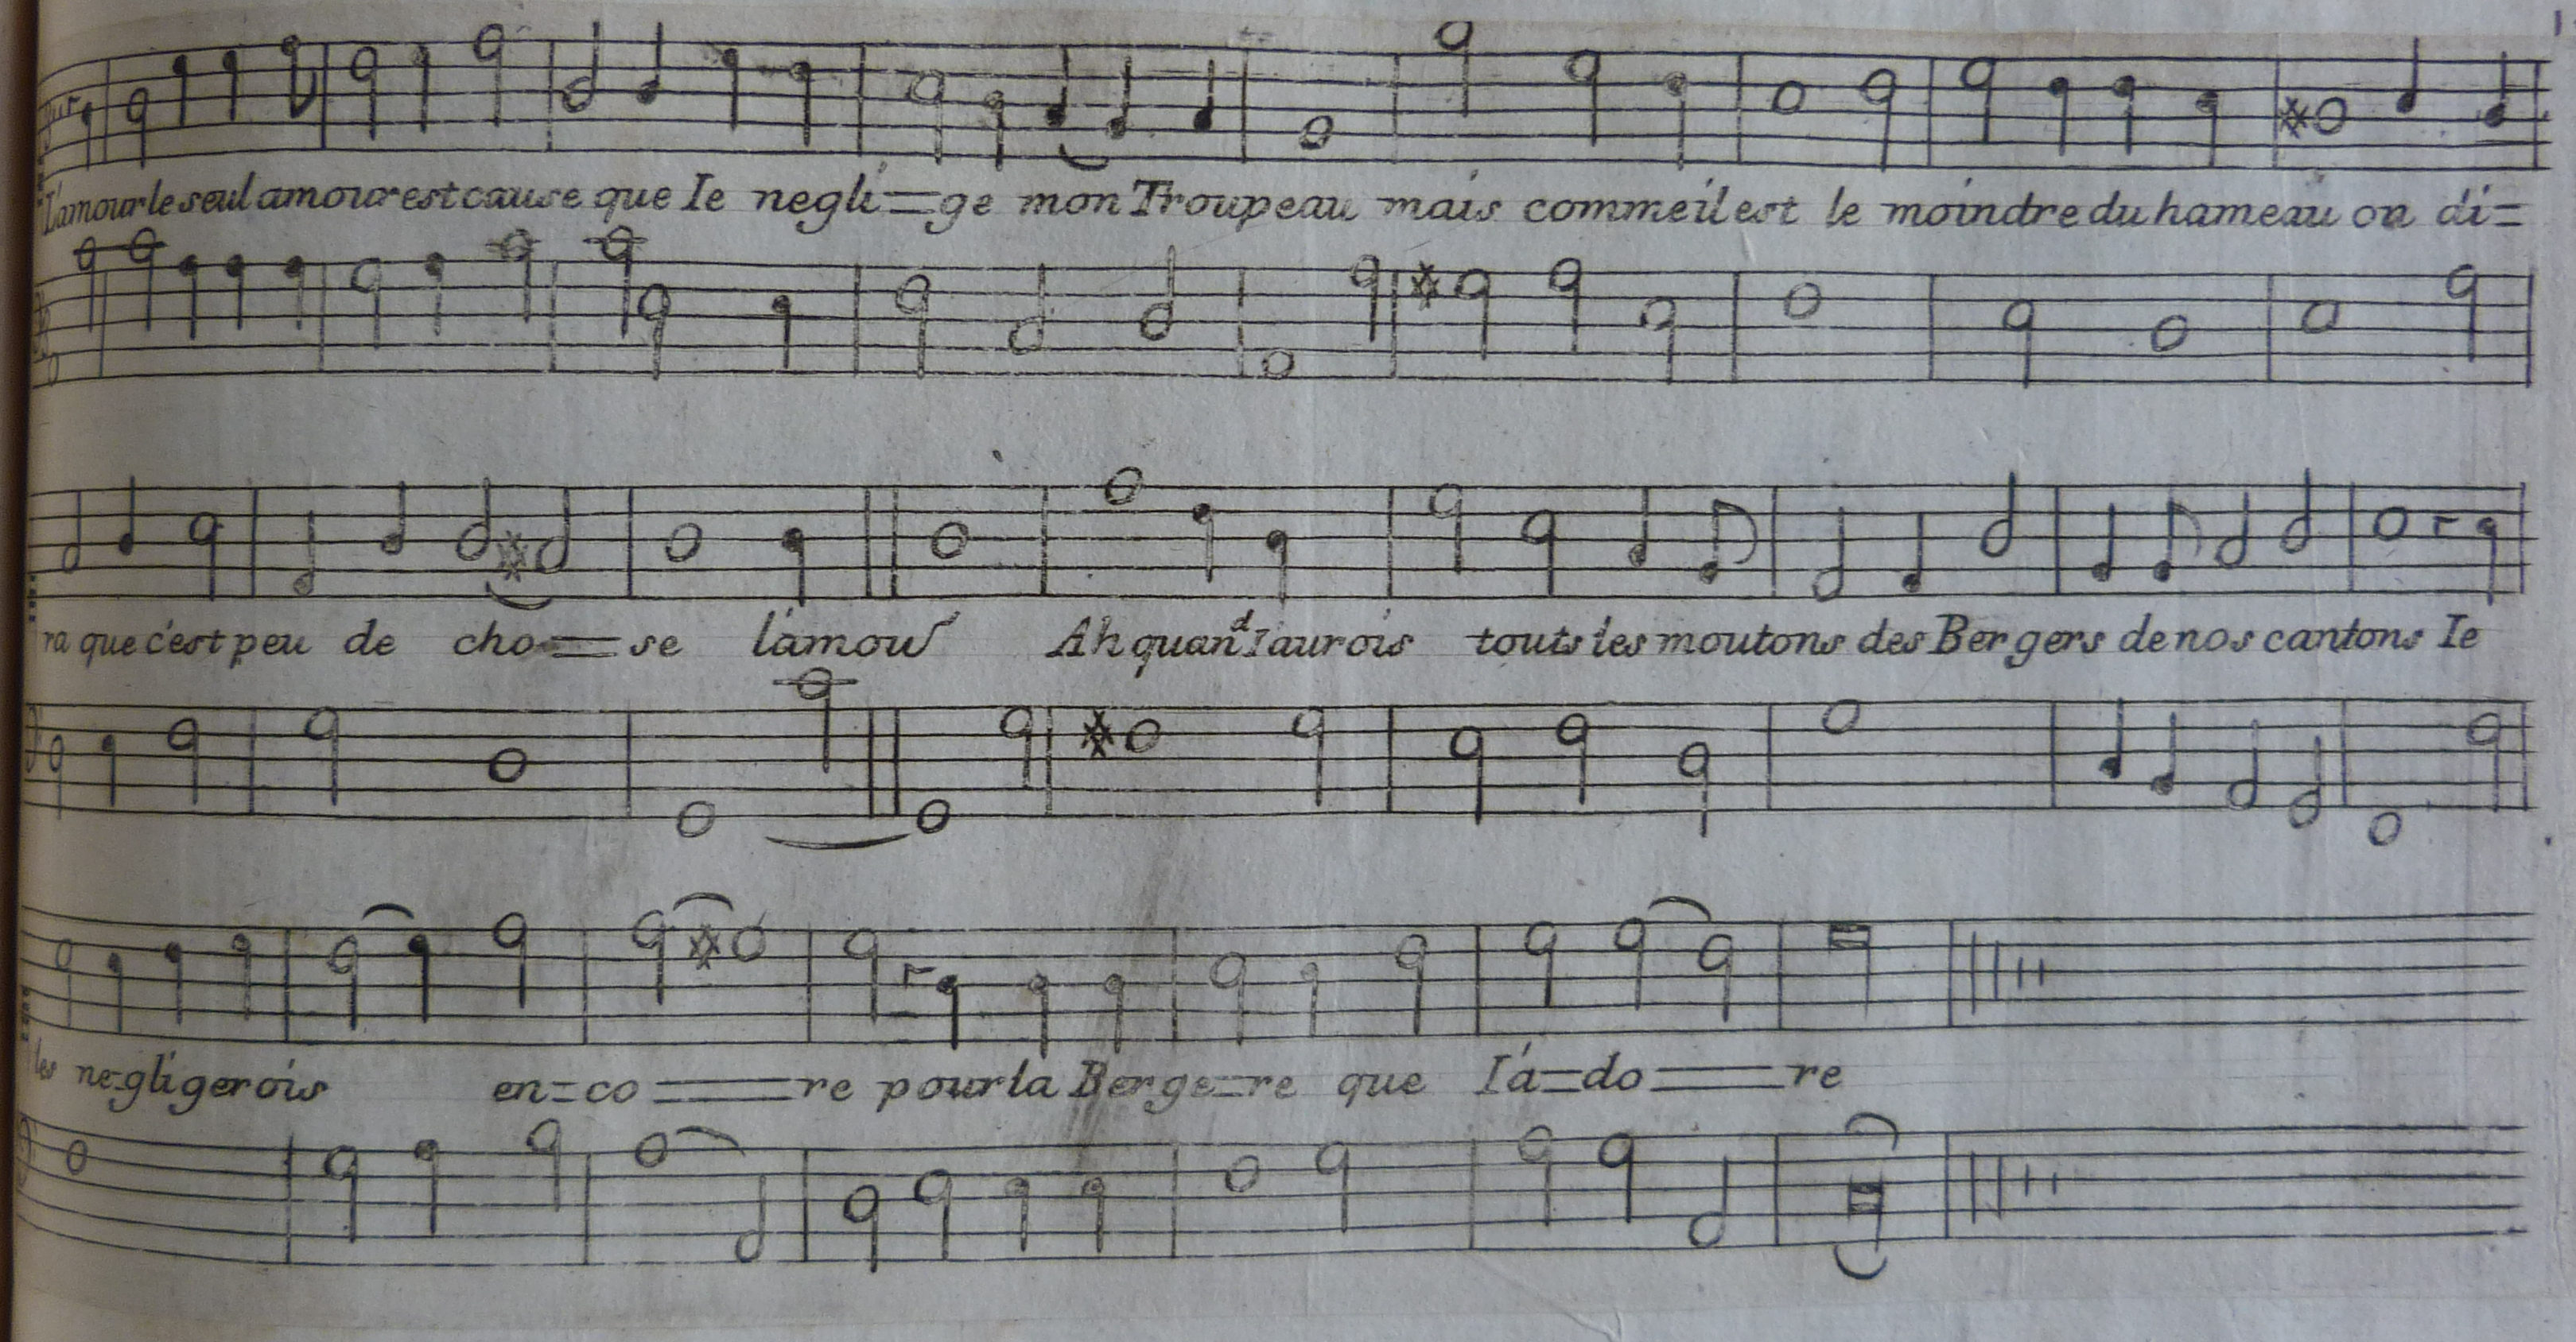 L'amour le seul amour est cause que Ie negli=ge mon Troupeau mais comme il est le moindre du hameau on di=
ra que c'est peu de cho=se l'amour Ah quand I'aurois touts les moutons des Bergers de nos cantons Ie
les negligerois en=co=re pour la Berge=re que I'a=do=re